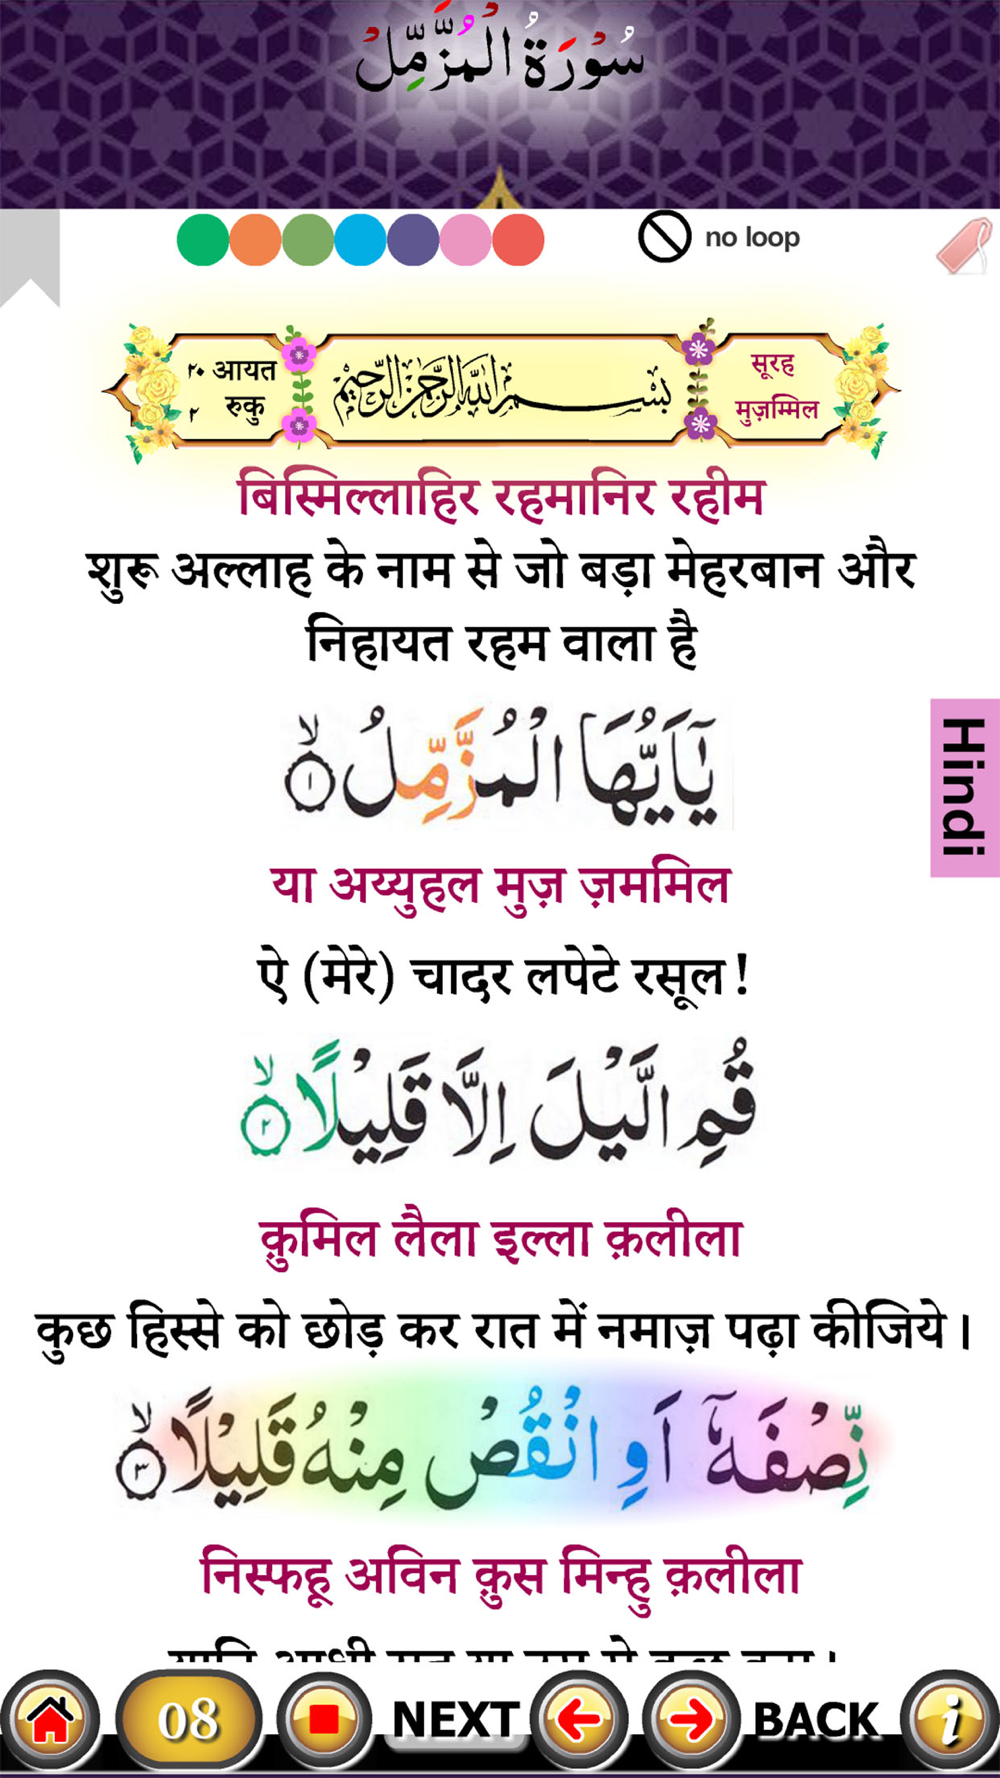 سُوْرَةُ الْمُزَّمِّلْ
no loop
२० आयत
२ रुकु
بِسْمِ اللهِ الرَّحْمٰنِ الرَّحِيْمِ
सूरह
मुज़म्मिल
बिस्मिल्लाहिर रहमानिर रहीम
शुरू अल्लाह के नाम से जो बड़ा मेहरबान और
निहायत रहम वाला है
يٰۤاَيُّهَا الْمُزَّمِّلُ ۙ ١
Hindi
या अय्युहल मुज़ ज़ममिल
ऐ (मेरे) चादर लपेटे रसूल!
قُمِ الَّيْلَ اِلَّا قَلِيْلًا ۙ ٢
क़ुमिल लैला इल्ला क़लीला
कुछ हिस्से को छोड़ कर रात में नमाज़ पढ़ा कीजिये।
نِّصْفَهٗۤ اَوِ انْقُصْ مِنْهُ قَلِيْلًا ۙ ٣
निस्फहू अविन क़ुस मिन्हु क़लीला
08 NEXT BACK i